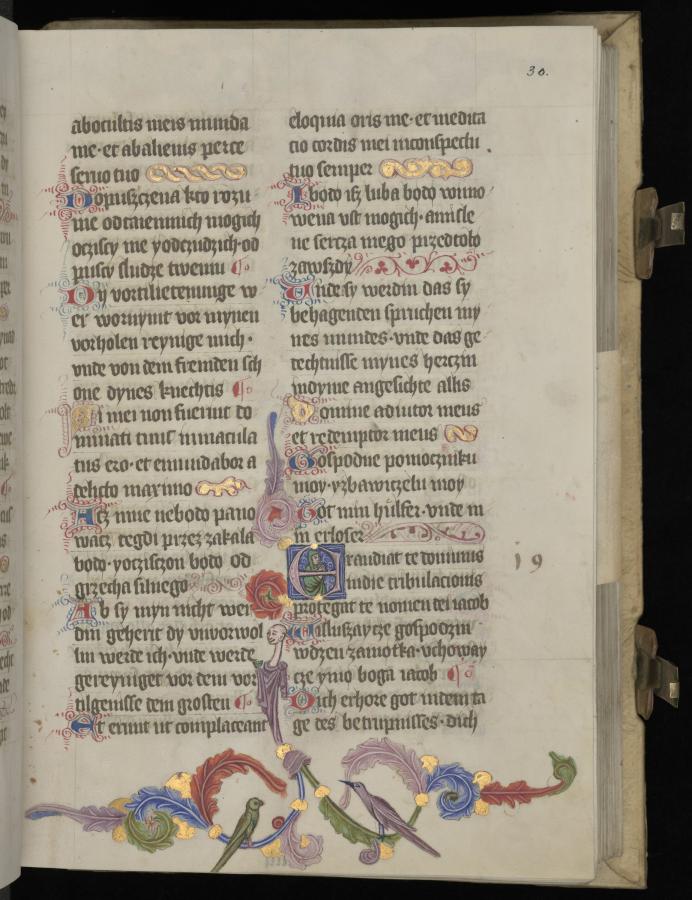 30.
abocultis meis munda
me · et abalienis parce
seruo tuo
Dopuszczena kto rozu
me odtaiemnich mogich
ocziscy me yodczudzich · od
puscy sludze twemu
Dy vortilictenunge w
er wornymt vor mynen
vorholen reynige mich ·
vnde von dem fremden sch
one dynes knechtis
Si mei non fuerint do
minati tunc inmacula
tus ero · et emundabor a
delicto maximo
Acz mne nebodo pano
wacz tegdi przez zakala
bodo · yoczisczon bodo od
grzecha silnego
Ab sy myn nicht wer
din geherit dy vnvorwol
lin werde ich · vnde werde
gereyniget vor dem vor
tilgenisse dem grosten
Et erunt ut complaceant
eloquia oris me · et medita
cio cordis mei inconspectu
tuo semper
I bodo isz luba bodo wimo
wena vst mogich · amisle
ne sercza mego przedtobo
zawszdy
Unde sy werdin das sy
behagenden spruchen my
nes mundes · vnde das ge
techtnisse mynes herczin
indyme angesichte allis
Domine adiutor meus
et redemptor meus
Gospodne pomoczniku
moy · yzbawiczelu moy
Got min hülfer · vnde m
in erloser
Exaudiat te dominus
indie tribulacionis
protegat te nomen dei iacob
Wisluszay cze gospodzin
wdzen zamotka · vchoway
cze ymo boga iacob
Dich erhore got indem ta
ge des betrupnisses · dich
19